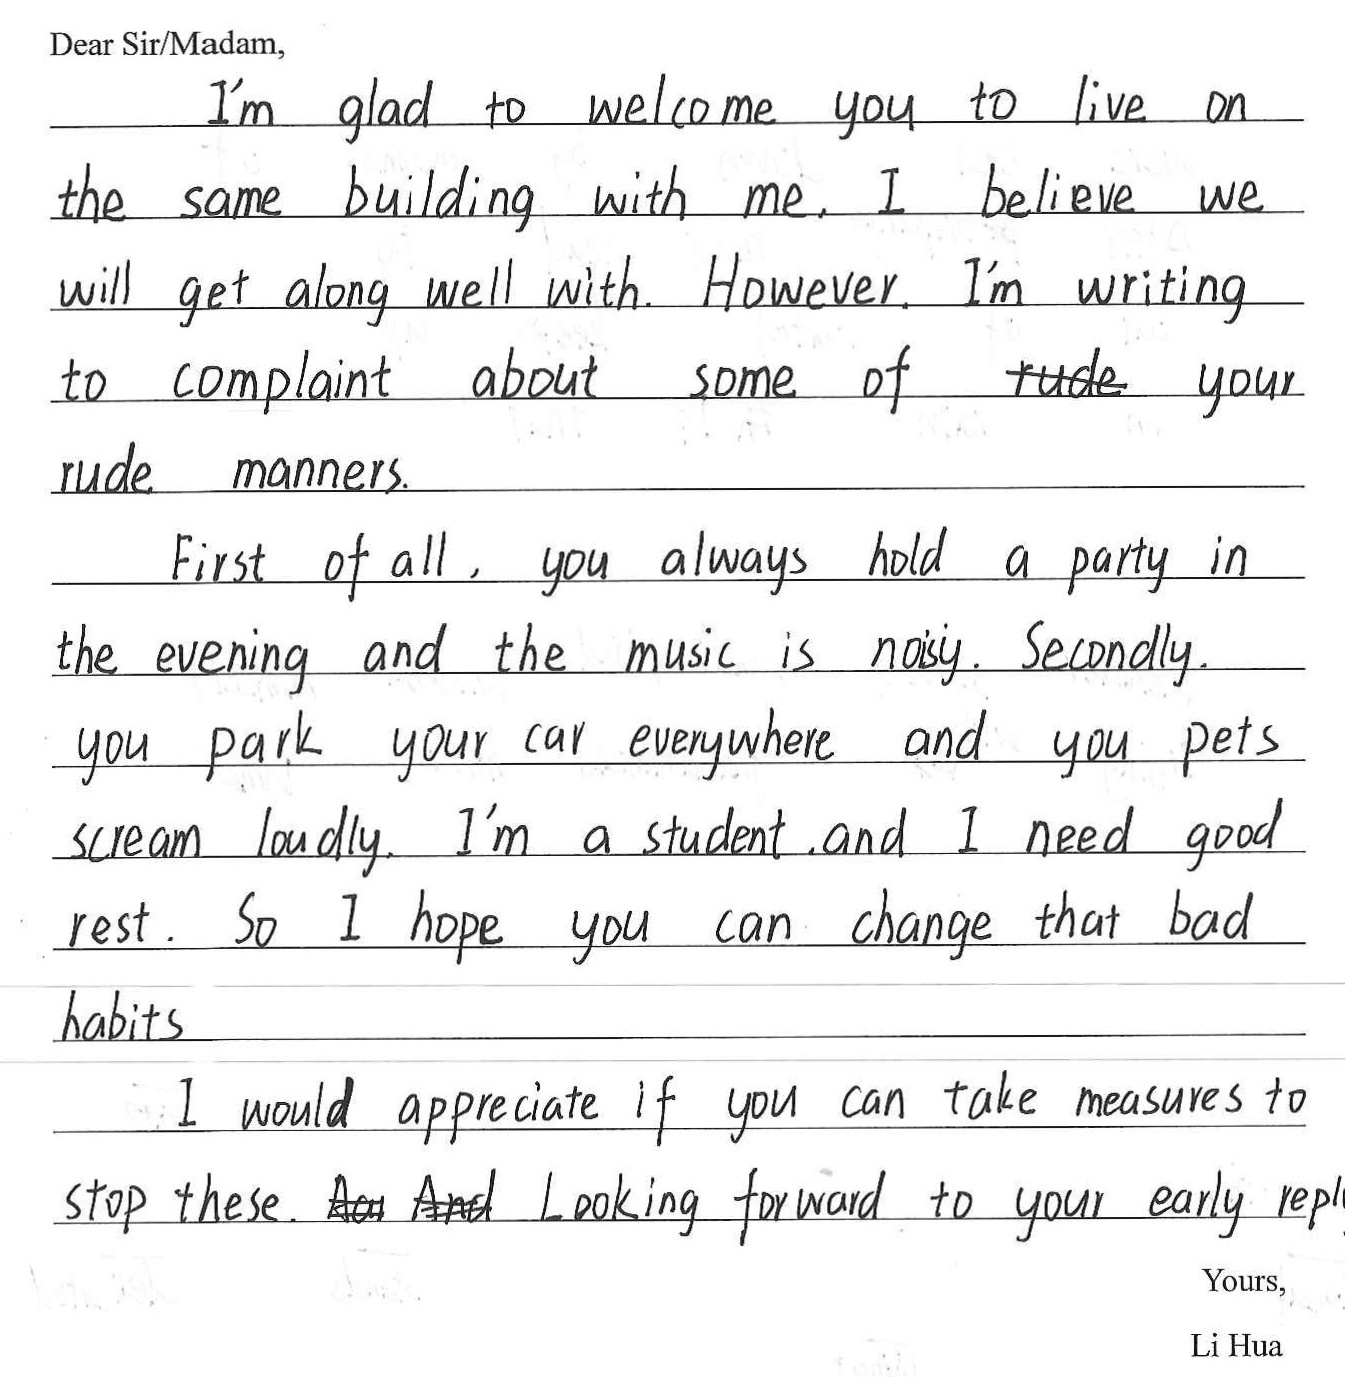 Dear Sir/Madam,
I'm glad to welcome you to live on
the same building with me. I believe we
will get along well with. However. I'm writing
to complaint about some of rude your
rude manners.
First of all, you always hold a party in
the evening and the music is noisy. Secondly.
you park your car everywhere and you pets
scream loudly. I'm a student .and I need good
rest. So I hope you can change that bad
habits
I would appreciate if you can take measures to
stop these. And Looking forward to your early reply
Yours,
Li Hua